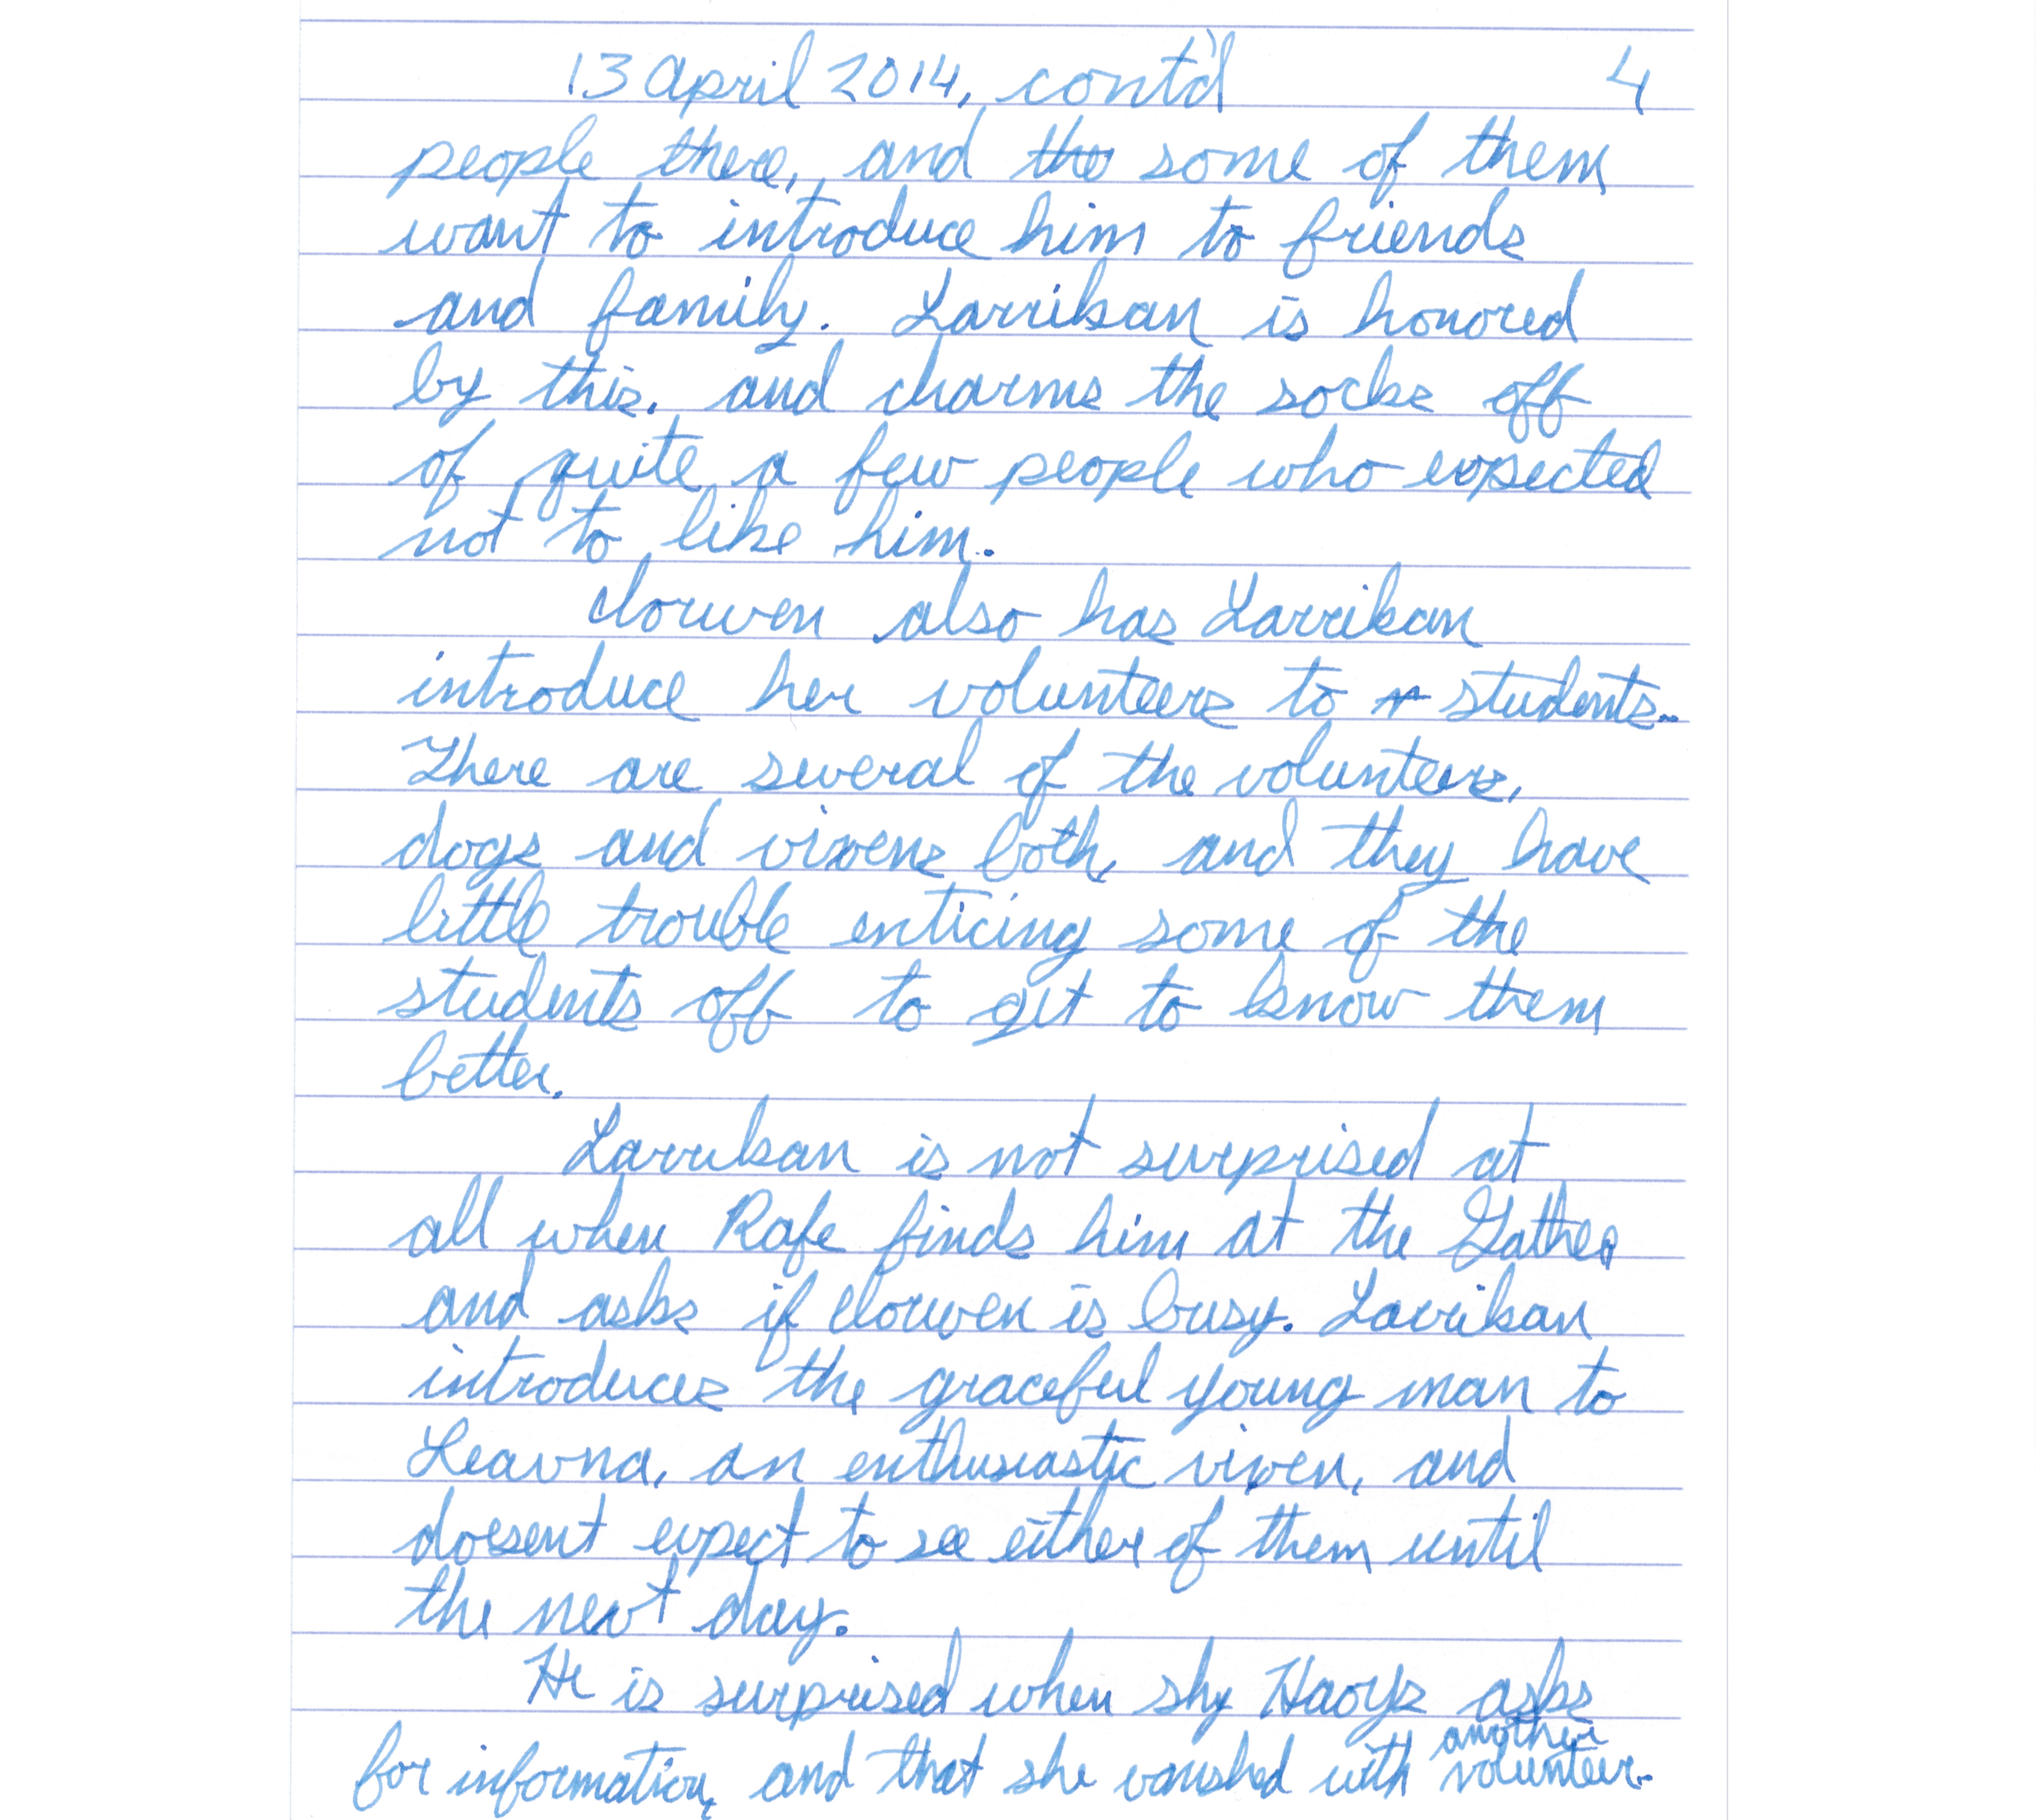 13 April 2014, cont'd 4
people there, and the some of them
want to introduce him to friends
and family. Larrikan is honored
by this. and charms the socks off
of quite a few people who expected
not to like him.
Clorwen also has Larrikan
introduce her volunteers to students.
There are several of the volunteers,
dogs and vixens both, and they have
little trouble enticing some of the
students off to get to know them
better.
Larrikan is not surprised at
all when Rafe finds him at the Gather
and asks if Clorwen is busy. Larrikan
introduces the graceful young man to
Leavna, an enthusiastic vixen, and
doesent expect to see either of them until
the next day.
He is surprised when shy Haoys asks
for information, and that she vanished with another
volunteer.